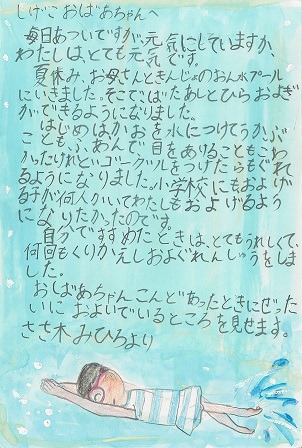 しげこおばあちゃんへ
毎日あついですが、元気にしていますか、
わたしは、とても元気です。
夏休み、お母さんときんじょのおん水プール
にいきました。そこで、ばたあしとひらおよぎ
ができるようになりました。
はじめは、かおを水につけてうかぶ
こともふあんで、目をあけることもこわ
かったけれど、ゴーグルをつけたらもぐれ
るようになりました。小学校にもおよげ
る子が何人かいてわたしもおよげるよう
になりたかったのです。
自分ですすめたときは、とてもうれしくて、
何回もくりかえしおよぐれんしゅうをしま
した。
おばあちゃんこんどあったときにぜった
いにおよいでいるところを見せます。
ささ木みひろより